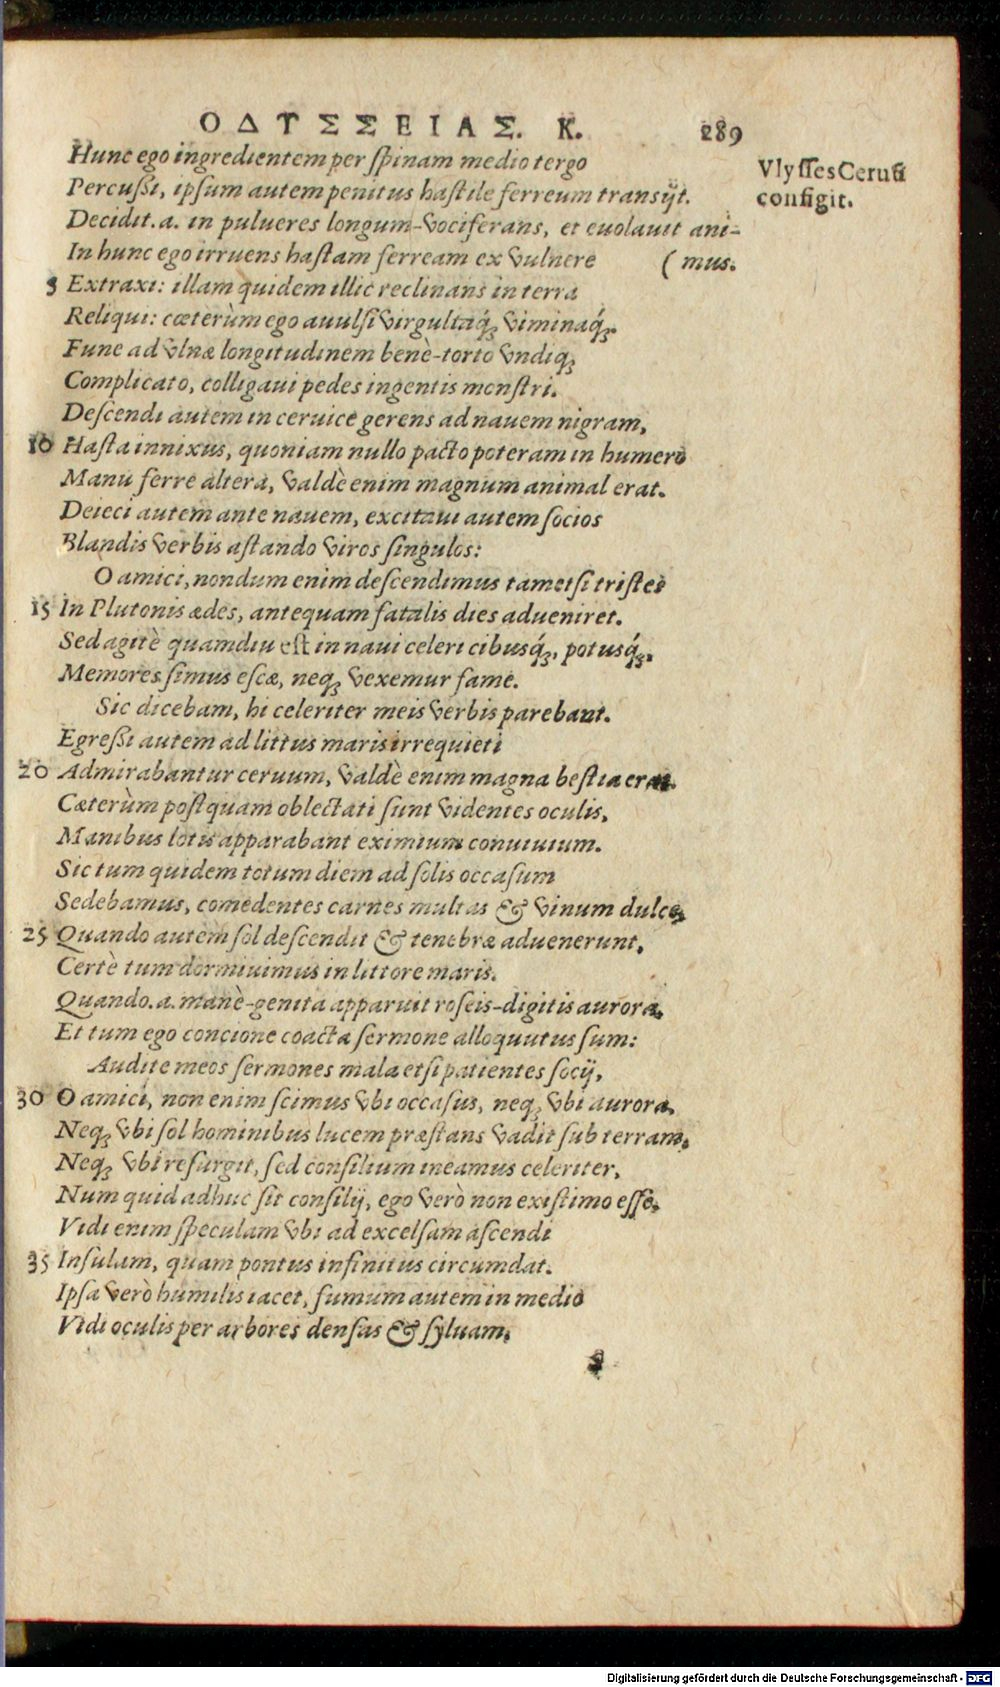 ΟΔΥΣΣΕΙΑΣ. Κ. 289
Hunc ego ingredientem per ſpinam medio tergo
Vlyſſes Ceruũ
Percuſſi, ipſum autem penitus haſtile ferreum tranſijt.
configit.
Decidit.a. in pulueres longum-vociferans, et euolauit ani-
In hunc ego irruens haſtam ferream ex vulnere (mus.
5 Extraxi: illam quidem illic reclinans in terra
Reliqui: cæterùm ego auulſi virgultaq́ʒ viminaq́ʒ.
Fune ad vlnæ longitudinem benè-torto vndiqʒ
Complicato, colligaui pedes ingentis monſtri.
Deſcendi autem in ceruice gerens ad nauem nigram,
10 Haſta innixus, quoniam nullo pacto poteram in humero
Manu ferre altera, valdè enim magnum animal erat.
Deieci autem ante nauem, excitaui autem ſocios
Blandis verbis aſtando viros ſingulos:
O amici, nondum enim deſcendimus tametſi triſtes
15 In Plutonis ædes, antequam fatalis dies adueniret.
Sed agitè quamdiu eſt in naui celeri cibusq́ʒ, potusq́ʒ,
Memores ſimus eſcæ, neqʒ vexemur fame.
Sic dicebam, hi celeriter meis verbis parebant.
Egreſſi autem ad littus maris irrequieti
20 Admirabantur ceruum, valdè enim magna beſtia erat.
Cæterùm poſtquam oblectati ſunt videntes oculis,
Manibus lotis apparabant eximium conuiuium.
Sic tum quidem totum diem ad ſolis occaſum
Sedebamus, comedentes carnes multas & vinum dulce,
25 Quando autem ſol deſcendit & tenebræ aduenerunt,
Certè tum dormiuimus in littore maris.
Quando.a. manè-genita apparuit roſeis-digitis aurora,
Et tum ego concione coacta ſermone alloquutus ſum:
Audite meos ſermones mala etſi patientes ſocij,
30 O amici, non enim ſcimus vbi occaſus, neqʒ vbi aurora,
Neqʒ vbi ſol hominibus lucem præſtans vadit ſub terram,
Neqʒ vbi reſurgit, ſed conſilium ineamus celeriter,
Num quid adhuc ſit conſilij, ego verò non exiſtimo eſſe,
Vidi enim ſpeculam vbi ad excelſam aſcendi
35 Inſulam, quam pontus infinitus circumdat.
Ipſa verò humilis iacet, fumum autem in medio
Vidi oculis per arbores denſas & ſyluam,
Digitalisierung gefördert durch die Deutsche Forschungsgemeinschaft - DFG